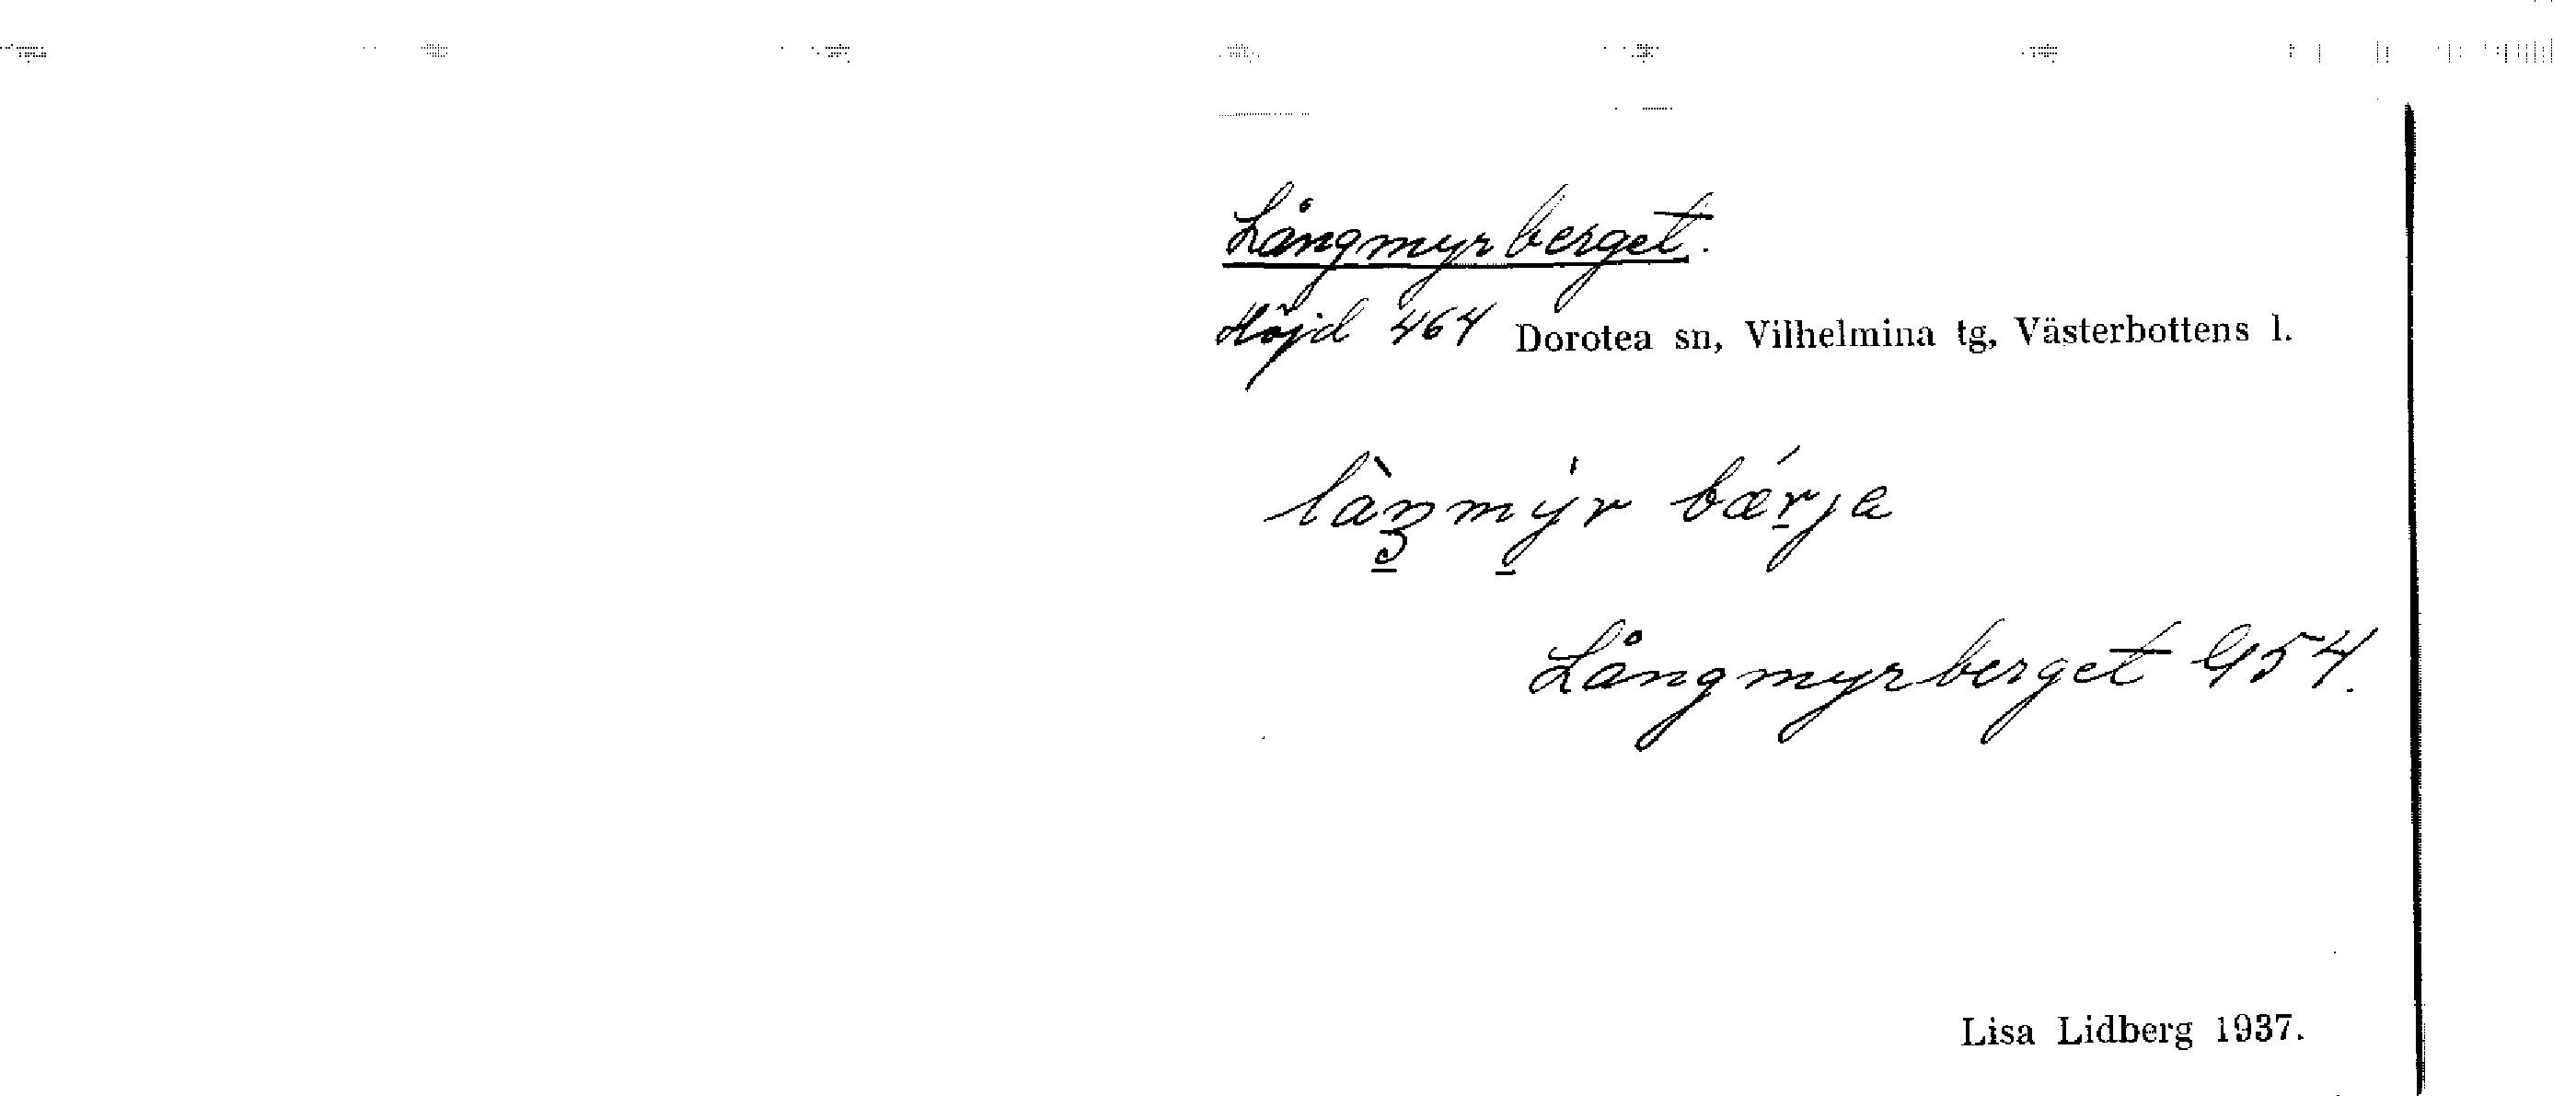 Långmyrberget.
Höjd 464 Dorotea sn, Vilhelmina tg, Västerbottens l.
bǽrja
Långmyrberget G54.
Lisa Lidberg 1937.